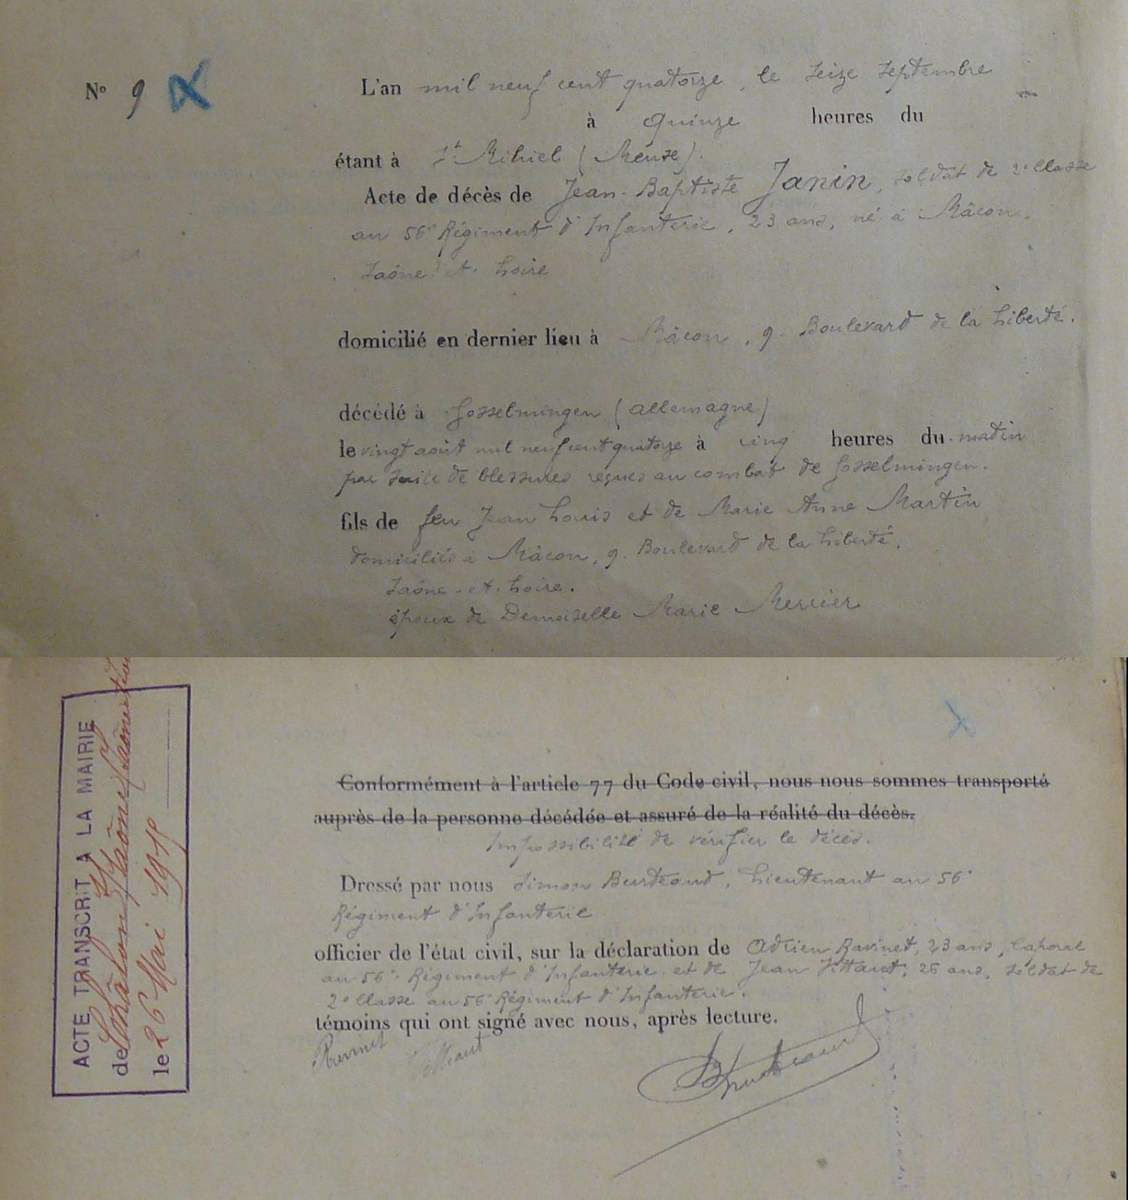 N° 9
L'an mil neuf cent quatorze, le seize septembre
à quinze heures du
étant à St Mihiel (Meuse).
Acte de décès de Jean-Baptiste Janin, soldat de 2e Classe
au 56e Régiment d'Infanterie, 23 ans, né à Mâcon.
Saône et Loire
domicilié en dernier lieu à Mâcon, 9. Boulevard de la Liberté.
décédé à Gosselmingen (Allemagne)
le vingt août mil neuf cent quatorze à cinq heures du matin
par suite de blessures reçues au combat de Gosselmingen.
fils de feu Jean Louis et de Marie Anne Martin
domiciliés à Mâcon, 9. Boulevard de la Liberté.
Saône-et-Loire.
époux de Demoiselle Marie Mercier
ACTE TRANSCRIT A LA MAIRIE
de Châlon s/Saône (Saône et Loire
le 26 Mai 1915
Conformément à l'article 77 du Code civil, nous nous sommes transporté
auprès de la personne décédée et assuré de la réalité du décès.
Impossibilité de vérifier le décès.
Dressé par nous Simon Burteaud, Lieutenant au 56e
Régiment d'Infanterie
officier de l'état civil, sur la déclaration de Adrien Ravinet, 23 ans, Caporal
au 56e Régiment d'Infanterie et de Jean Tittaut, 26 ans, soldat de
2e Classe au 56e Régiment d'Infanterie.
témoins qui ont signé avec nous, après lecture.
Ravinet